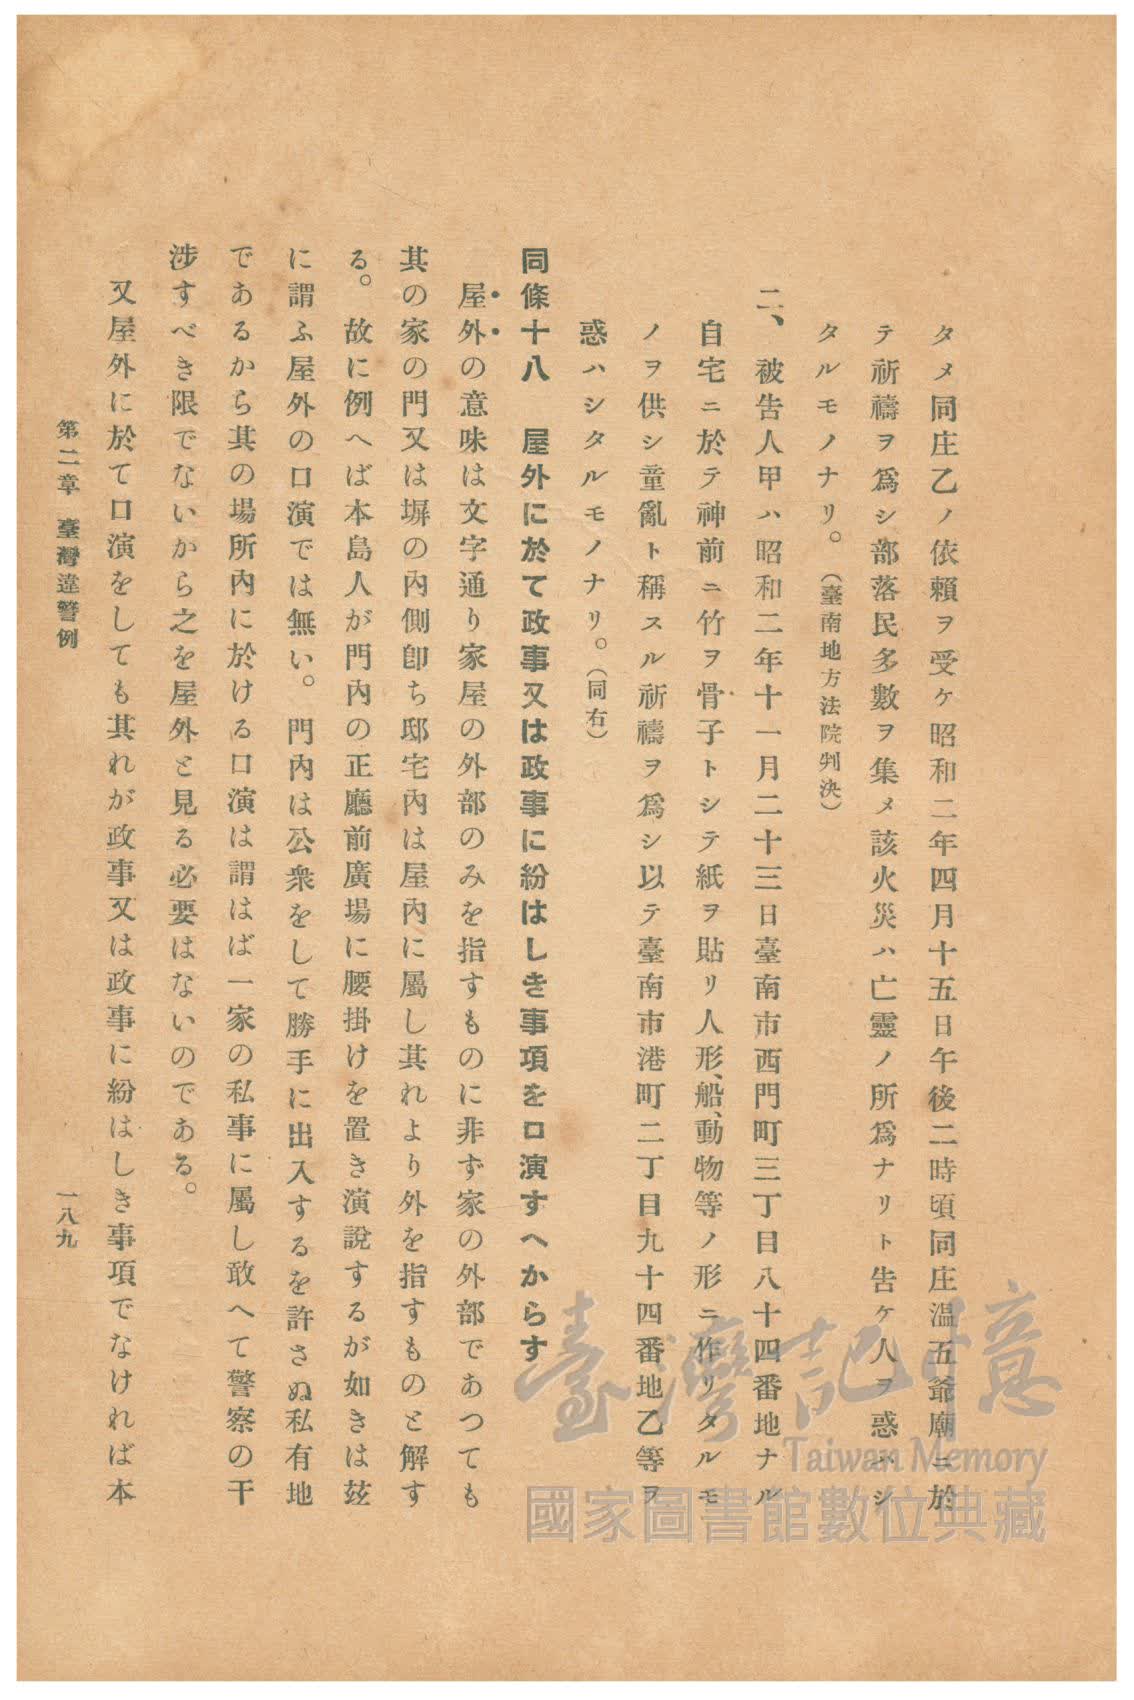 タメ同庄乙ノ依賴ヲ受ケ昭和二年四月十五日午後二時頃同庄溫五爺廟ニ於
テ祈禱ヲ爲シ部落民多數ヲ集メ該火災ハ亡靈ノ所爲ナリト告ケ人ヲ惑ハシ
タルモノナリ。(臺南地方法院判決)
二、被告人甲ハ昭和二年十一月二十三日臺南市西門町三丁目八十四番地ナル
自宅ニ於テ神前ニ竹ヲ骨子トシテ紙ヲ貼リ人形、船、動物等ノ形ニ作リタルモ
ノヲ供シ童亂ト稱スル祈禱ヲ爲シ以テ臺南市港町二丁目九十四番地乙等ヲ
惑ハシタルモノナリ。(同右)
同條十八 屋外に於て政事又は政事に紛はしき事項を口演すへからす
屋外の意味は文字通り家屋の外部のみを指すものに非ず家の外部であつても
其の家の門又は塀の內側卽ち邸宅內は屋內に屬し其れより外を指すものと解す
る。故に例へば本島人が門內の正廳前廣場に腰掛けを置き演說するが如きは玆
に謂ふ屋外の口演では無い。門內は公衆をして勝手に出入するを許さぬ私有地
であるから其の場所內に於ける口演は謂はば一家の私事に屬し敢へて警察の干
涉すべき限でないから之を屋外と見る必要はないのである。
又屋外に於て口演をしても其れが政事又は政事に紛はしき事項でなければ本
第二章 臺灣違警例
一八九
臺灣記憶
Taiwan Memory
國家圖書館數位典藏